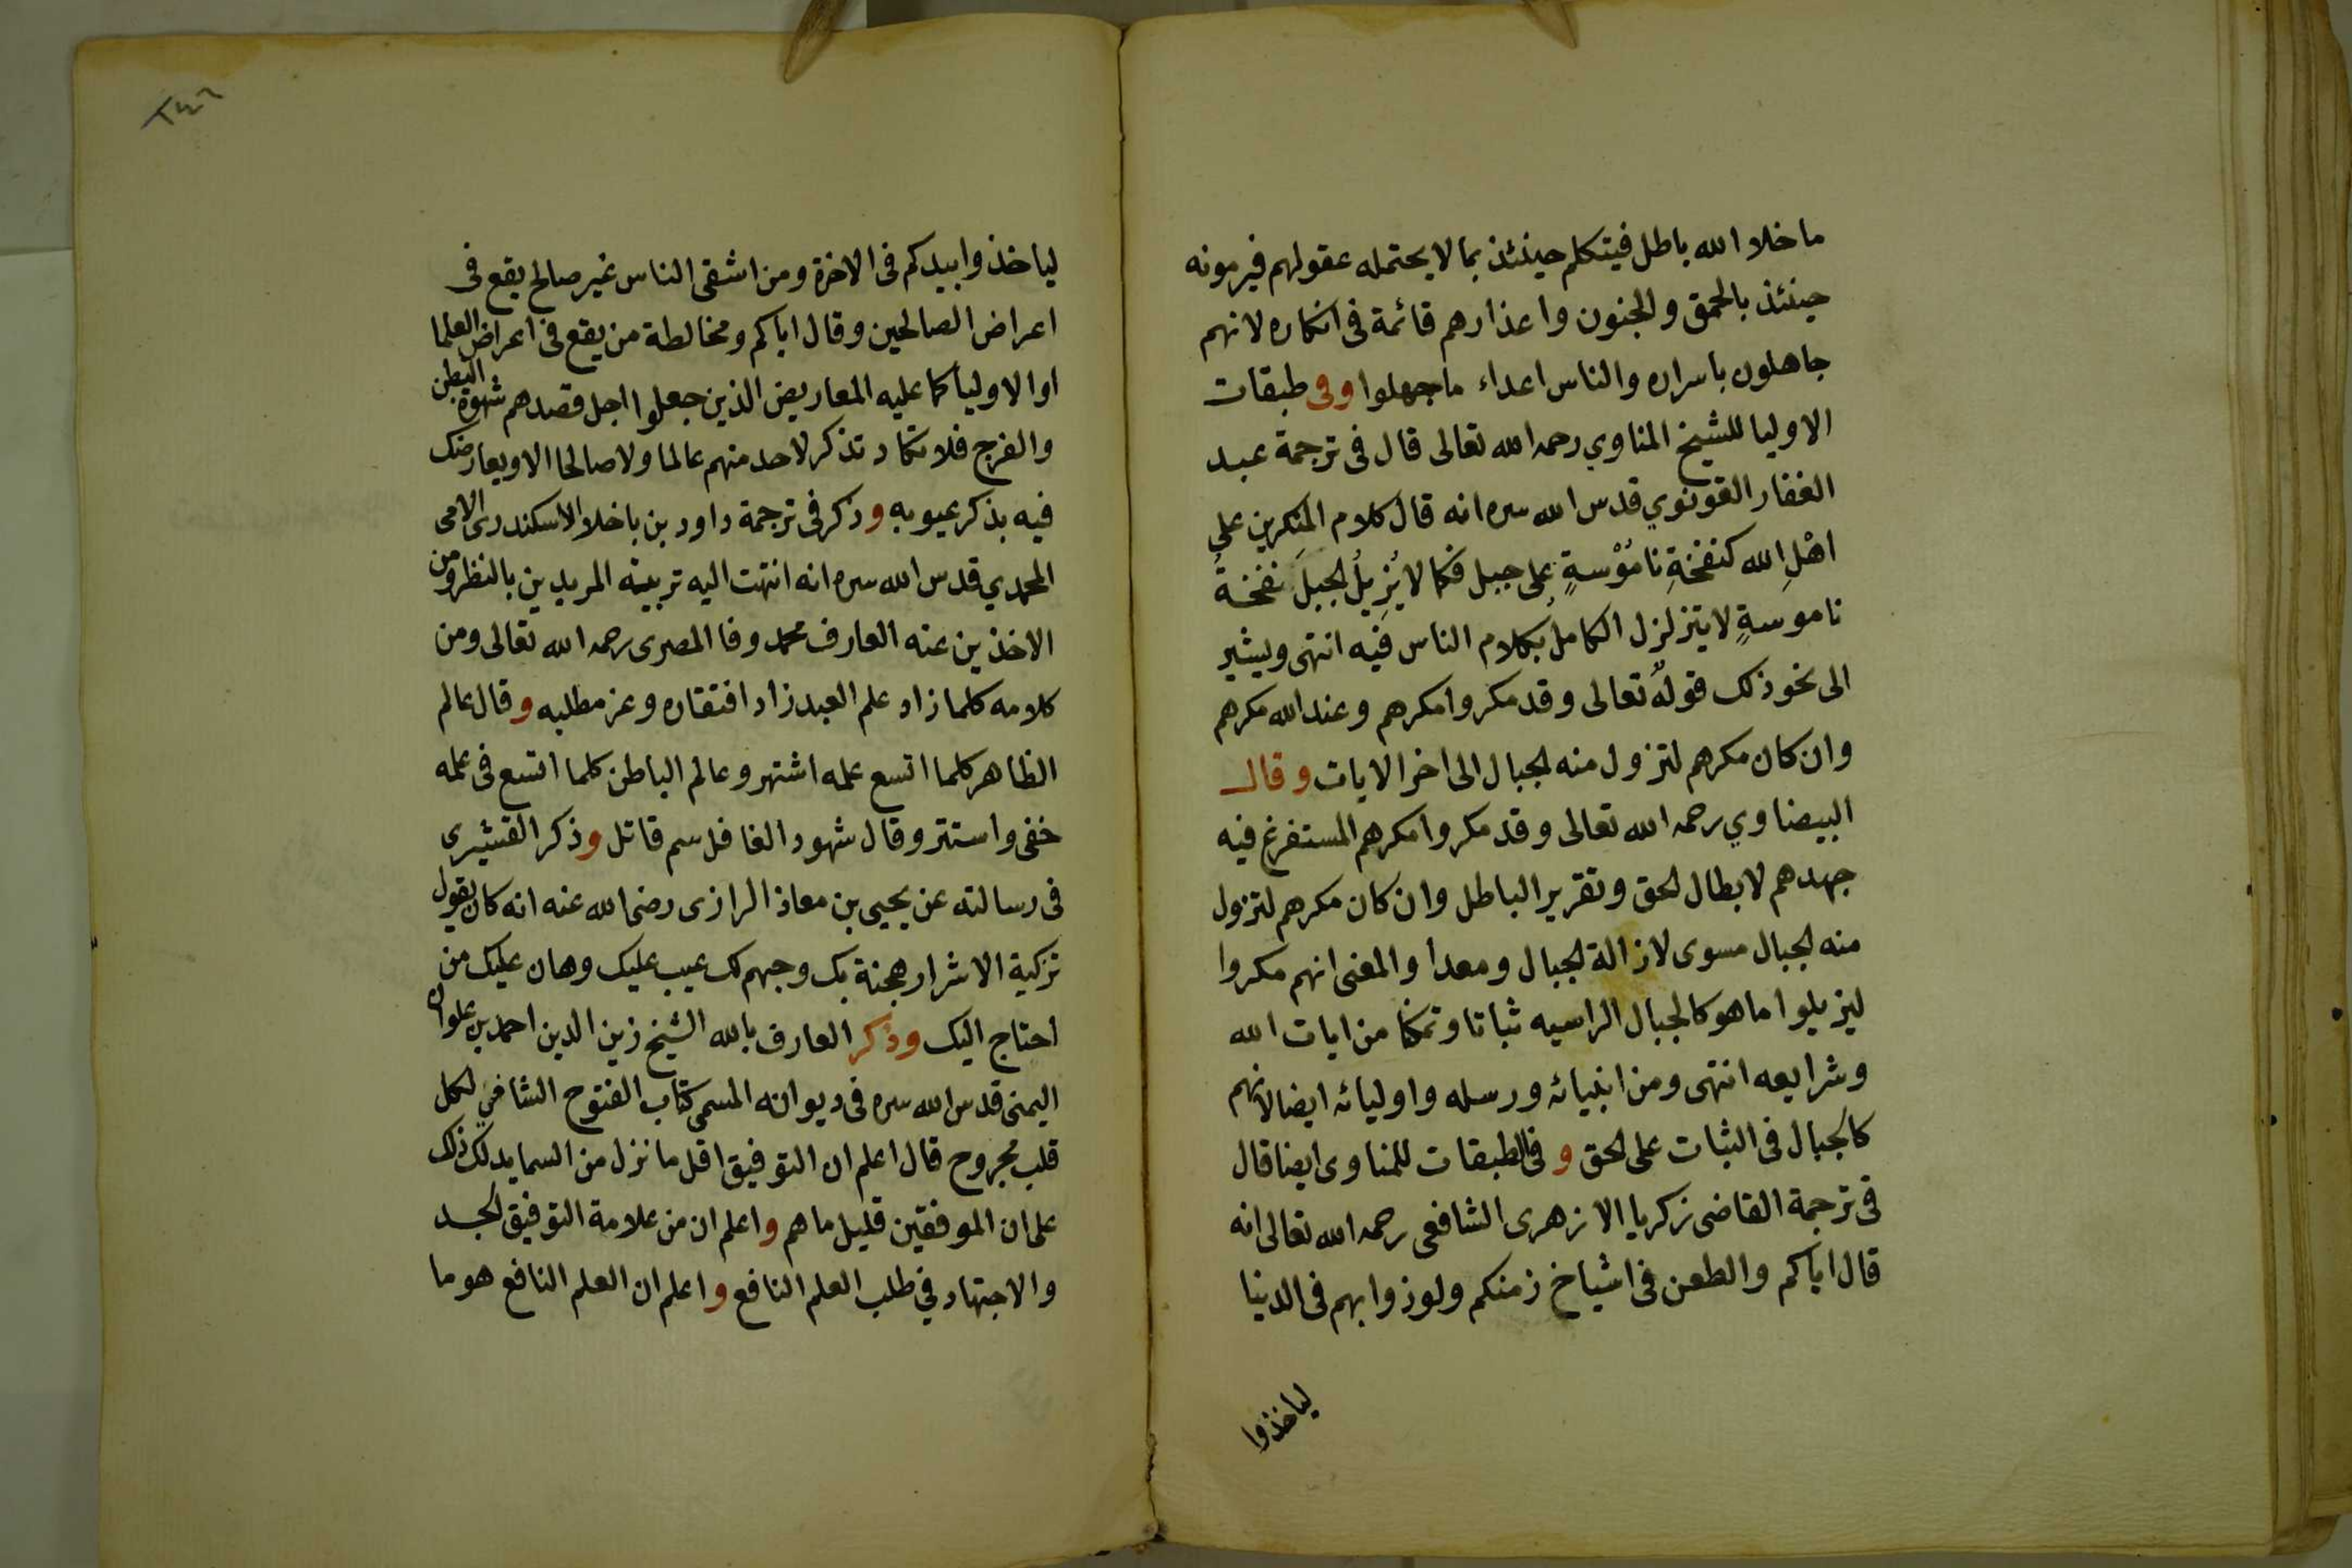 ما خلا الله باطل فيتكلم حينئذ بما لا يحتمله عقولهم فيرمونه
حينئذ بالحمق والجنون واعذارهم قائمة فى انكاره لانهم
جاهلون باسراره والناس اعداء ما جهلوا وفى طبقات
الاوليا للشيخ المناوي رحمه الله تعالى قال فى ترجمة عبد
الغفار القونوي قدس الله سره انه قال كلام المنكرين على
اهْلِ الله كنفخةِ نامُوْسةٍ على جبل فكما لا يُزِيلُ الجبلَ نفخةُ
ناموسةٍ لا يتزلزل الكامل بكلام الناس فيه انتهى ويشير
الى نحو ذلك قولُه تعالى وقد مكروا مكرهم وعند الله مكرهم
وان كان مكرهم لتزول منه الجبال الى اخر الايات وقال
البيضاوي رحمه الله تعالى وقد مكروا مكرهم المستفرغ فيه
جهدهم لابطال الحق وتقرير الباطل وان كان مكرهم لتزول
منه الجبال مسوى لازالة الجبال ومعدا والمعنى انهم مكروا
ليزيلوا ما هو كالجبال الراسيه ثباتا وتمكنا من ايات الله
وشرايعه انتهى ومن انبيائه ورسله واوليائه ايضا لانهم
كالجبال فى الثبات على الحق وفى الطبقات للمناوى ايضا قال
فى ترجمة القاضى زكريا الازهرى الشافعى رحمه الله تعالى انه
قال اياكم والطعن فى اشياخ زمنكم ولوذوا بهم فى الدنيا
لياخذوا
٢٤٦
لياخذوا بيدكم فى الاخرة ومن اشقى الناس غير صالح يقع فى
اعراض الصالحين وقال اياكم ومخالطة من يقع فى اعراض العلما
او الاوليا كما عليه المعاريض الذين جعلوا اجل قصدهم شهوة البطن
والفرج فلا تكاد تذكر لاحد منهم عالما ولا صالحا الا ويعارضك
فيه بذكر عيوبه وذكر فى ترجمة داود بن باخلا الاسكندرى الامى
المحمدي قدس الله سره انه انتهت اليه تربية المريدين بالنظر ومن
الاخذين عنه العارف محمد وفا المصرى رحمه الله تعالى ومن
كلامه كلما زاد علم العبد زاد افتقاره وعز مطلبه وقال عالم
الظاهر كلما اتسع علمه اشتهر وعالم الباطن كلما اتسع فى علمه
خفى واستتر وقال شهود الغافل سم قاتل وذكر القشيرى
فى رسالته عن يحيى بن معاذ الرازى رضى الله عنه انه كان يقول
تزكية الاشرار هجنة بك وحبهم لك عيب عليك وهان عليك من
احتاج اليك وذكر العارف بالله الشيخ زين الدين احمد بن علوان
اليمنى قدس الله سره فى ديوانه المسمى كتاب الفتوح الشافي لكل
قلب مجروح قال اعلم ان التوفيق اقل ما نزل من السما يدلك ذلك
على ان الموفقين قليل ما هم واعلم ان من علامة التوفيق الجد
والاجتهاد في طلب العلم النافع واعلم ان العلم النافع هو ما